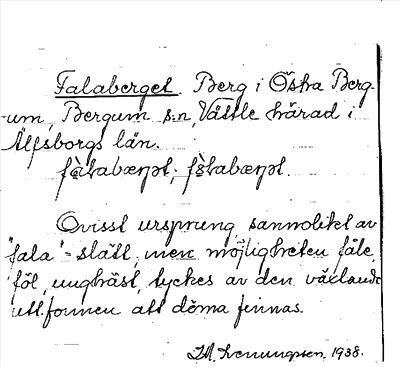 Falaberget. Berg i Östra Berg-
um, Bergum s:n, Vättle härad i
Älfsborgs län.
Ovisst ursprung, sannolikt av
"fala" = slätt, men möjligheten fåle,
föl, unghäst, tyckes av den växlande
utt.formen att döma finnas.
1938.